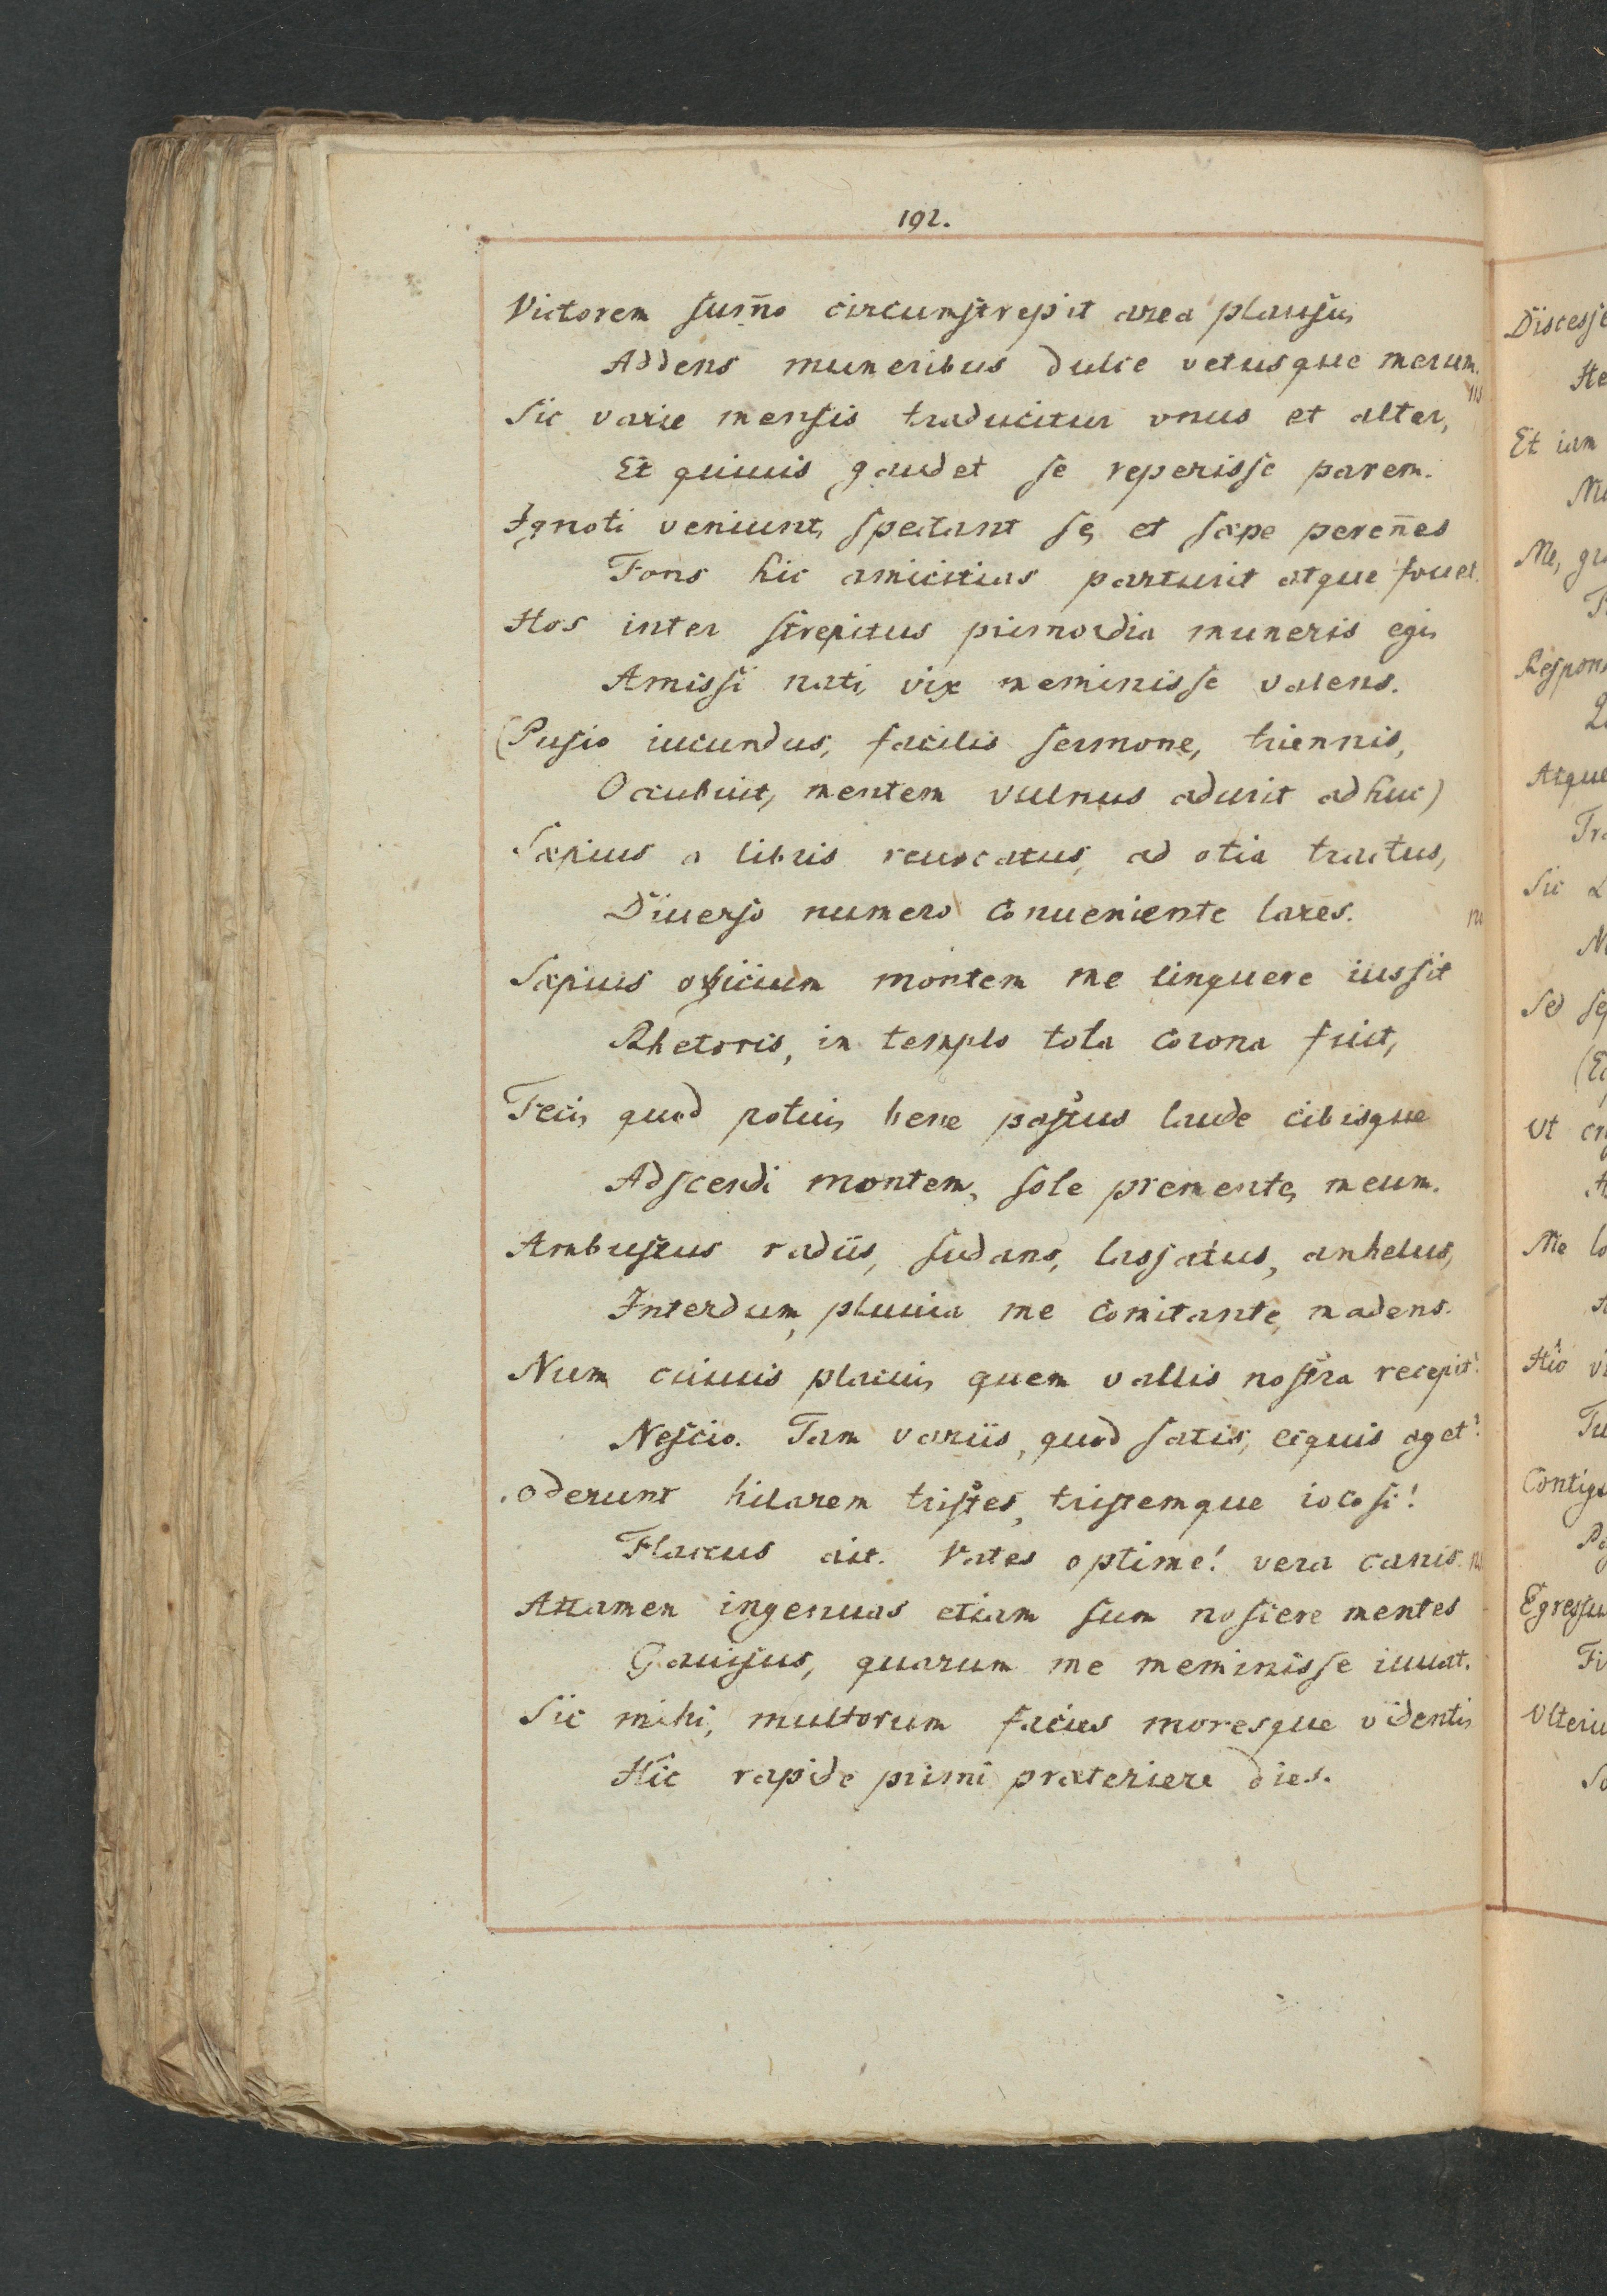 192.
Victorem sum̄o circumstrepit area plausu,
Addens muneribus dulce vetusque merum.
Sic varie mensis traducitur vnus et alter,
Et quiuis gaudet se reperisse parem.
Ignoti veniunt, spectant se, et sæpe pereñes
Fons hic amicitias parturit atque fouet.
Hos inter strepitus primordia muneris egi,
Amissi nati, vix meminisse valens.
(Pusio iucundus, facilis sermone, triennis,
Occubuit, mentem vulnus adurit adhuc)
Sæpius a libris reuocatus, ad otia tractus,
Diuerso numero conueniente lares.
Sæpius officium montem me linquere iussit
Rhetoris, in templo tota corona fuit,
Feci, quod potui, bene pastus laude cibisque
Adscendi montem, sole premente, meum.
Ambustus radiis, sudans, lassatus, anhelus,
Interdum, pluuia me comitante, madens.
Num cuiuis placui, quem vallis nostra recepit?
Nescio. Tam variis, quod satis, ecquis aget?
oderunt hilarem tristes, tristemque iocosi!
Flaccus ait. Vates optime! vera canis.
Attamen ingenuas etiam sum noscere mentes
Gauisus, quarum me meminisse iuuat.
Sic mihi, multorum facies moresque videnti,
Hic rapide primi præteriere dies.
Discesse
He
Et iam
Me, gr
Respons
Atque
Tra
Sic
Sed se
Vt
Me lo
Hic vi
Tu
Contig
Egressu
Vlteriu